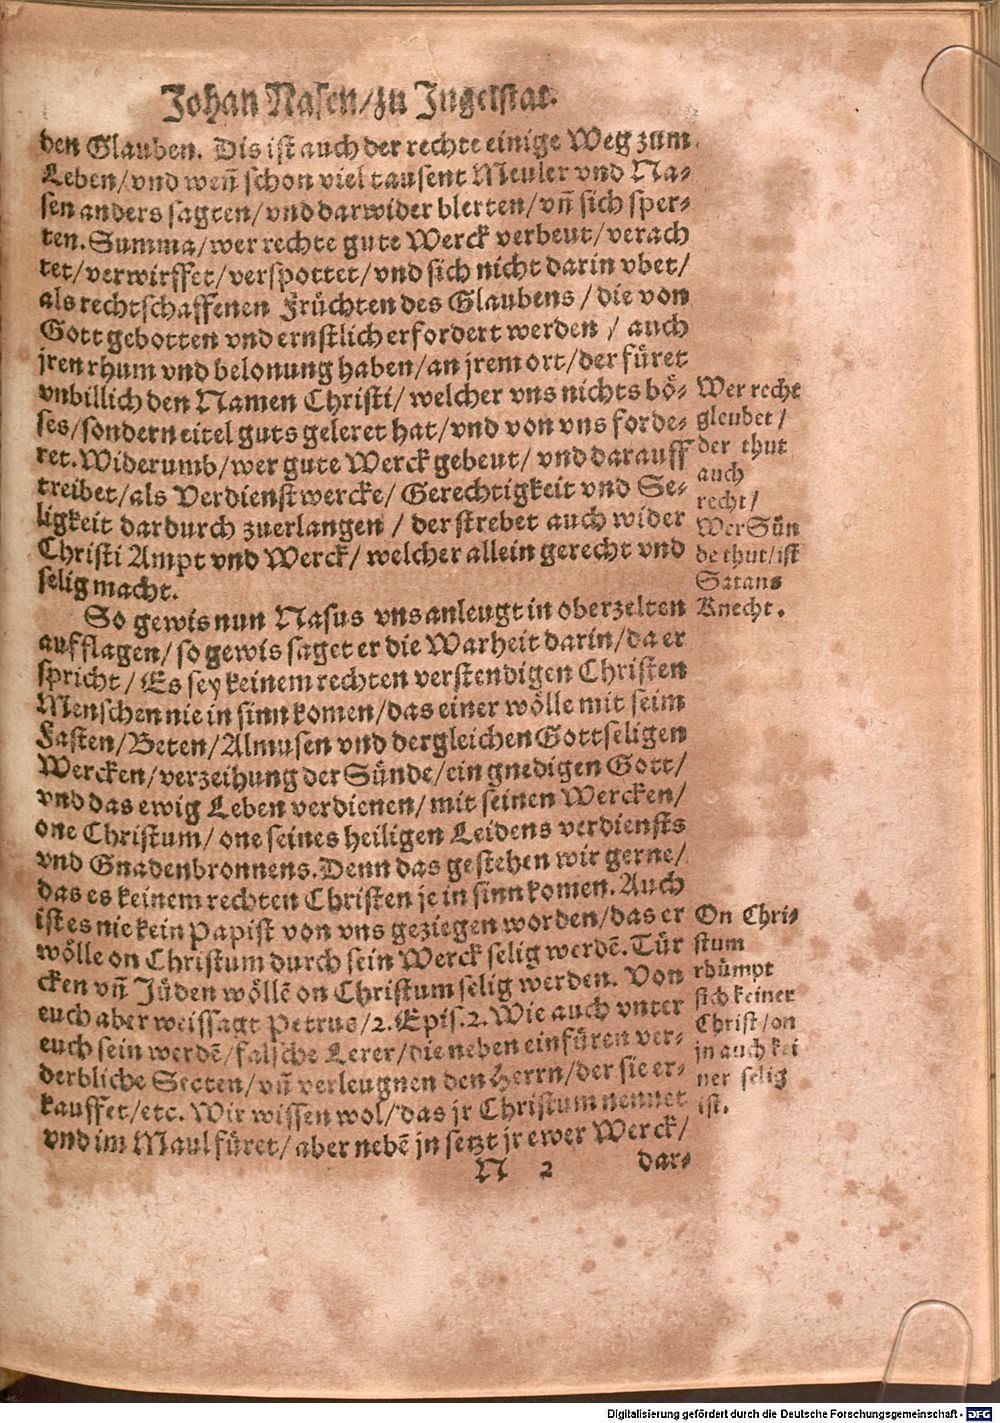 Johan Nasen/zu Ingelstat.
den Glauben. Dis ist auch der rechte einige Weg zum
Leben/vnd weñ schon viel tausent Meuler vnd Na⸗
sen anders sagten/vnd darwider blerten/vñ sich sper⸗
ten. Summa/wer rechte gute Werck verbeut/verach
tet/verwirffet/verspottet/vnd sich nicht darin vbet/
als rechtschaffenen Früchten des Glaubens/die von
Gott gebotten vnd ernstlich erfordert werden/ auch
jren rhum vnd belonung haben/an jrem ort/der füret
vnbillich den Namen Christi/welcher vns nichts bö⸗
ses/sondern eitel guts geleret hat/vnd von vns forde⸗
ret. Widerumb/wer gute Werck gebeut/vnd darauff
treibet/als Verdienstwercke/Gerechtigkeit vnd Se⸗
ligkeit dardurch zuerlangen/der strebet auch wider
Christi Ampt vnd Werck/welcher allein gerecht vnd
selig macht.
Wer recht
gleubet/
der thut
auch
recht/
Wer Sün
de thut/ist
Satans
Knecht.
So gewis nun Nasus vns anleugt in oberzelten
aufflagen/so gewis saget er die Warheit darin/da er
spricht/Es sey keinem rechten verstendigen Christen
Menschen nie in sinn komen/das einer wölle mit seim
Fasten/Beten/Almusen vnd dergleichen Gottseligen
Wercken/verzeihung der Sünde/ein gnedigen Gott/
vnd das ewig Leben verdienen/mit seinen Wercken/
one Christum/one seines heiligen Leidens verdiensts
vnd Gnadenbronnens. Denn das gestehen wir gerne/
das es keinem rechten Christen je in sinn komen. Auch
ist es nie kein Papist von vns geziegen worden/das er
wölle on Christum durch sein Werck selig werdē. Tür
cken vñ Jüden wöllē on Christum selig werden. Von
euch aber weissagt Petrus/2. Epis. 2. Wie auch vnter
euch sein werdē/falsche Lerer/die neben einfüren ver⸗
derbliche Secten/vñ verleugnen den Herrn/der sie er⸗
kauffet/etc. Wir wissen wol/das jr Christum nennet
vnd im Maul füret/aber nebē jn setzt jr ewer Werck/
On Chri⸗
stum
rhümpt
sich keiner
Christ/on
jn auch kei
ner selig
ist.
N 2 dar⸗
Digitalisierung gefördert durch die Deutsche Forschungsgemeinschaft - DFG